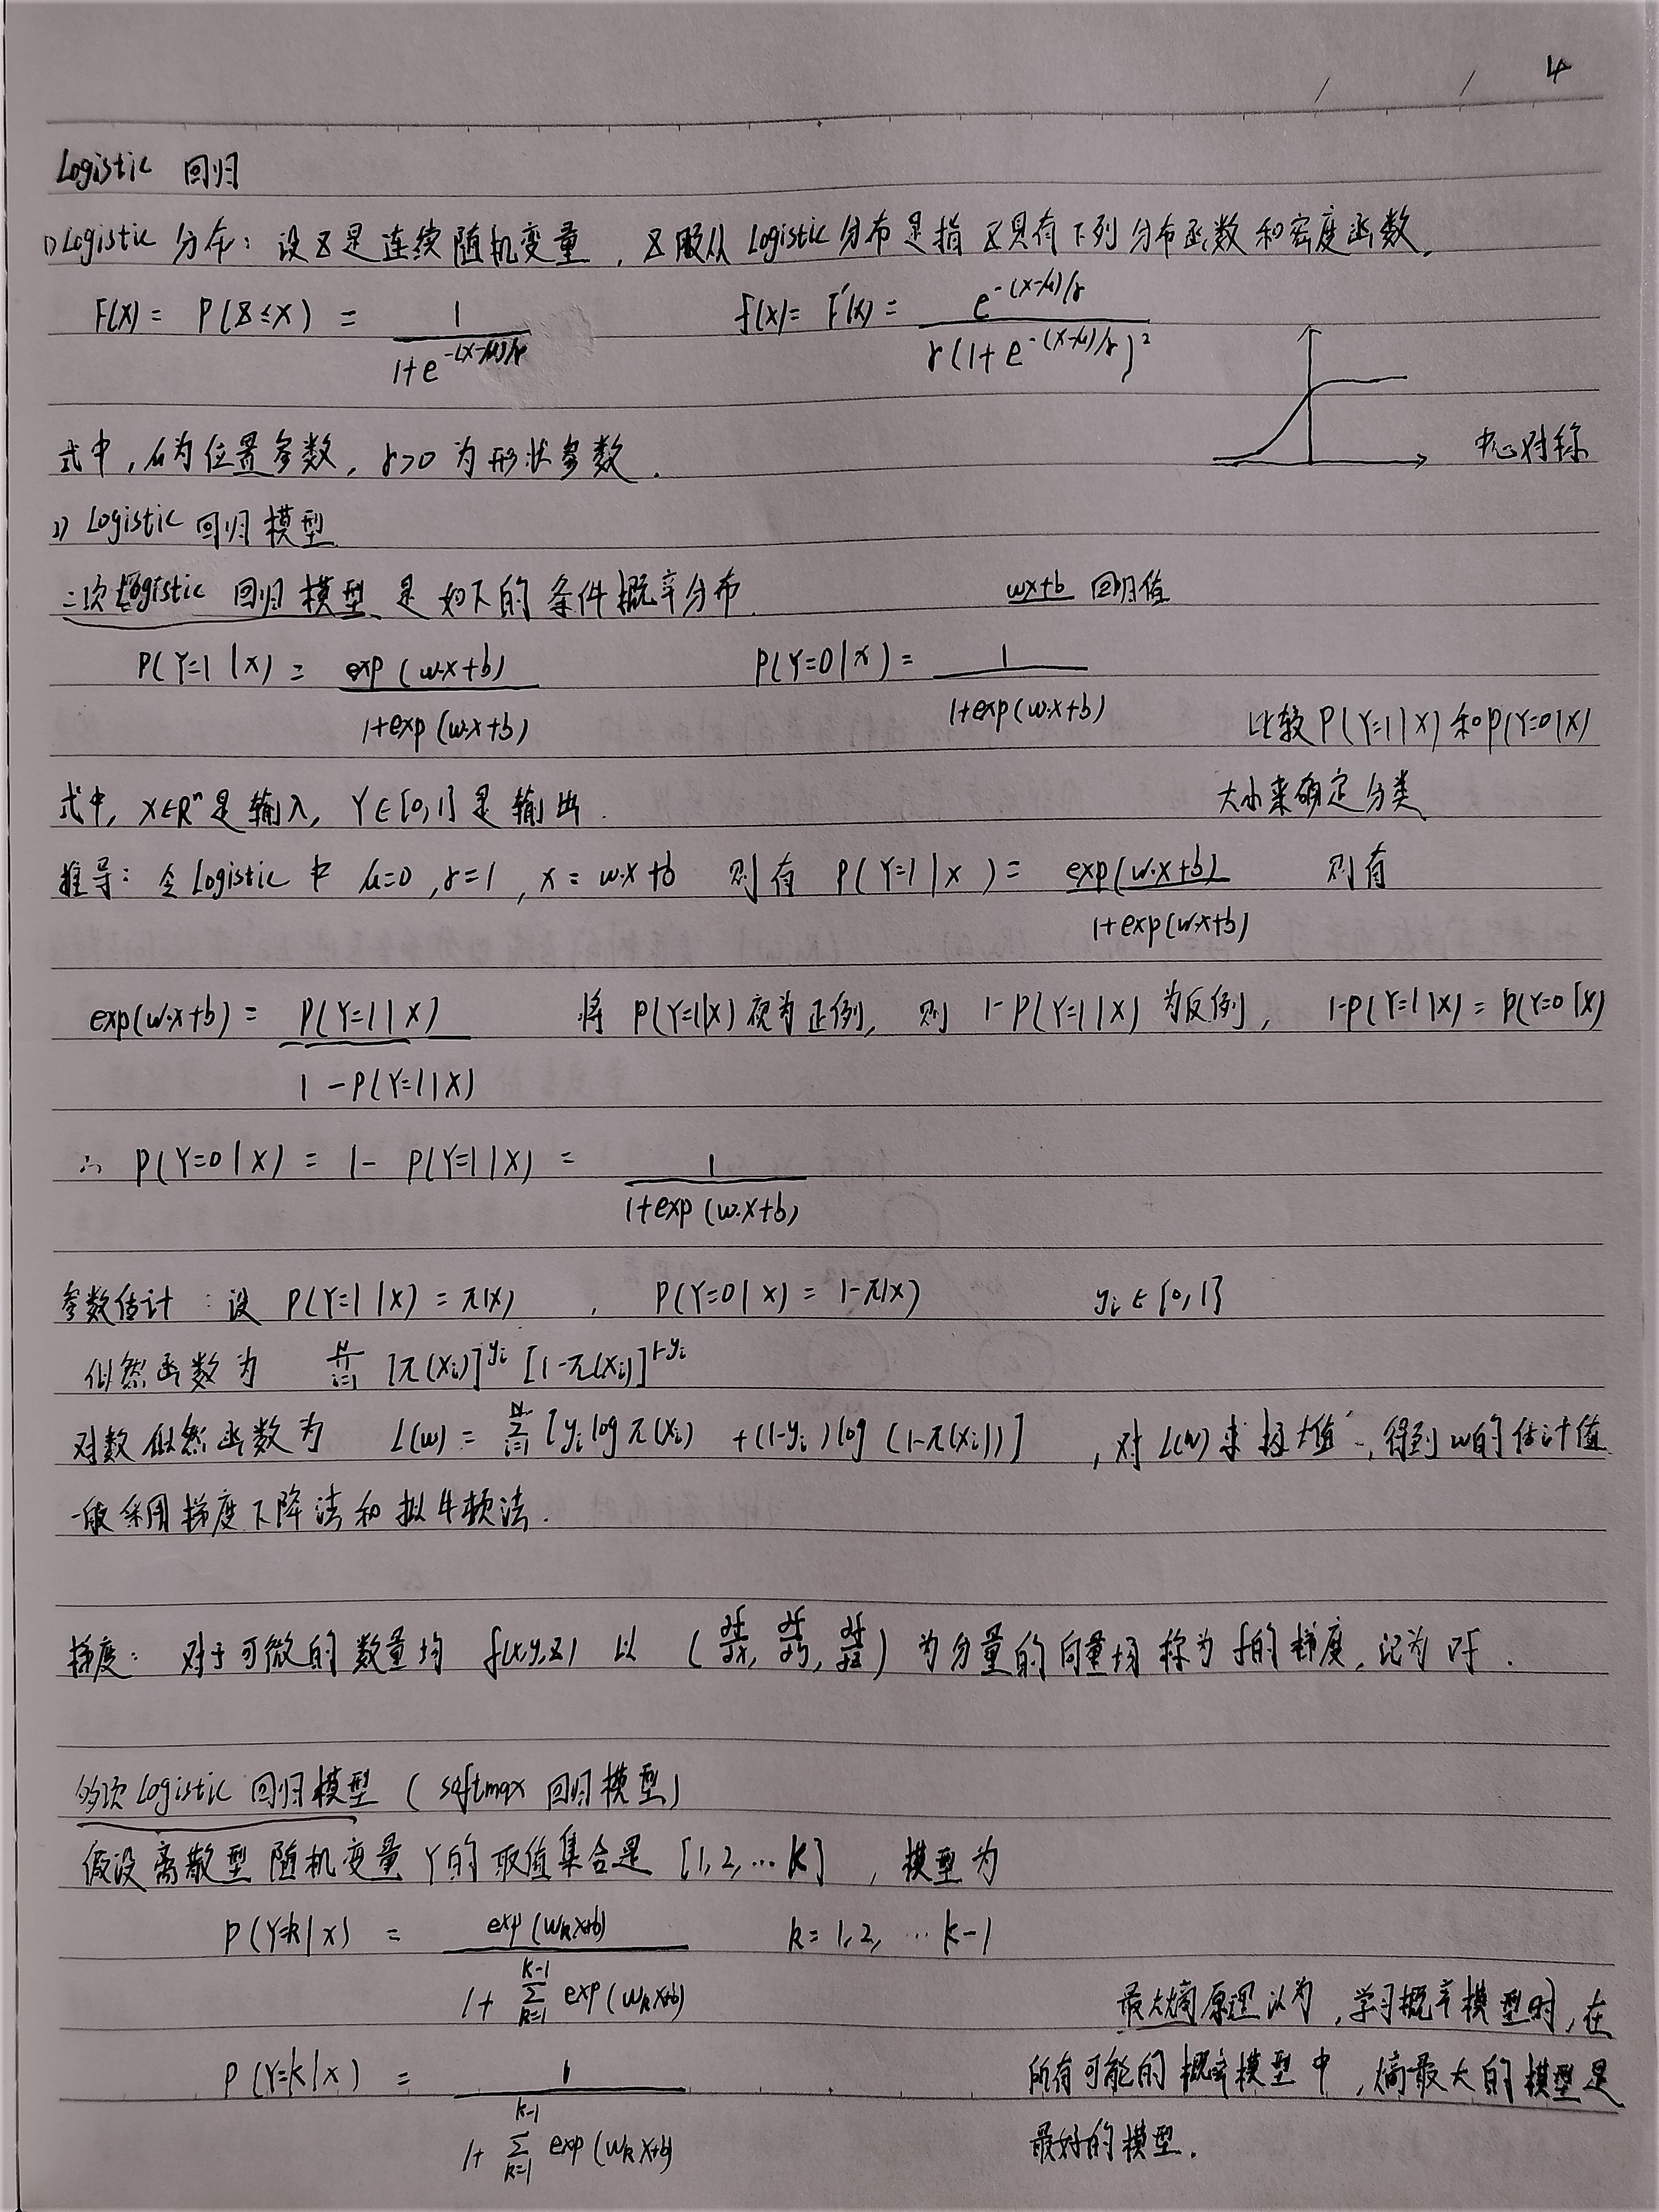 4
Logistic 回归
1) Logistic 分布：设Z是连续随机变量，Z服从 Logistic分布是指 Z具有下列分布函数和密度函数.
F(x) = P(Z≤x) = 1/(1+e^{-(x-μ)/γ})    f(x) = F'(x) = e^{-(x-μ)/γ}/(γ(1+e^{-(x-μ)/γ})²)
式中，μ为位置参数，γ>0 为形状参数.    中心对称
2) Logistic 回归模型
二次Logistic 回归模型 是如下的条件概率分布.    wx+b 回归值
P(Y=1|x) = exp(w·x+b)/(1+exp(w·x+b))    P(Y=0|x) = 1/(1+exp(w·x+b))
比较P(Y=1|x)和P(Y=0|x)
大小来确定分类
式中, x∈Rⁿ是输入, Y∈{0,1}是输出.
推导：令 Logistic 中 μ=0, γ=1, x = w·x+b 则有 P(Y=1|x) = exp(w·x+b)/(1+exp(w·x+b)) 则有
exp(w·x+b) = P(Y=1|x)/(1-P(Y=1|x))    将 P(Y=1|x)视为正例, 则 1-P(Y=1|x)为反例, 1-P(Y=1|x) = P(Y=0|x)
∴ P(Y=0|x) = 1- P(Y=1|x) = 1/(1+exp(w·x+b))
参数估计：设 P(Y=1|x) = π(x), P(Y=0|x) = 1-π(x)    yᵢ∈{0,1}
似然函数为 ∏_{i=1}^{N} [π(xᵢ)]^{yᵢ} [1-π(xᵢ)]^{1-yᵢ}
对数似然函数为 L(w) = ∑_{i=1}^{N} [yᵢ log π(xᵢ) + (1-yᵢ) log (1-π(xᵢ))], 对 L(w) 求极大值, 得到w的估计值
一般采用梯度下降法和拟牛顿法.
梯度：对于可微的数量均 f(x,y,z) 以 (∂f/∂x, ∂f/∂y, ∂f/∂z) 为分量的向量场称为 f的梯度, 记为 ∇f.
多次Logistic 回归模型 (softmax 回归模型)
假设离散型随机变量Y的取值集合是 {1,2,…K}, 模型为
P(Y=k|x) = exp(wₖx+b)/(1+∑_{k=1}^{K-1} exp(wₖx+b))    k = 1,2, … K-1
P(Y=K|x) = 1/(1+∑_{k=1}^{K-1} exp(wₖx+b))
最大熵原理认为, 学习概率模型时, 在
所有可能的概率模型中, 熵最大的模型是
最好的模型.